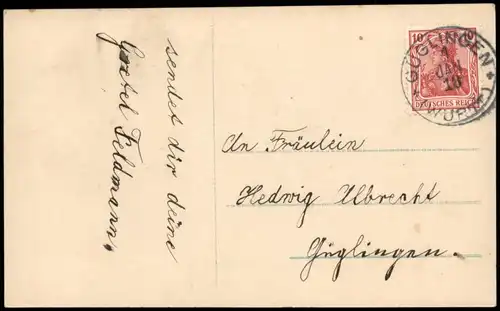 sendet dir deine
Gretel Feldmann.
10
DEUTSCHES REICH
GÜGLINGEN
JAN
10
(WÜRTT.)
An Fräulein
Hedwig Ulbrecht
Güglingen.